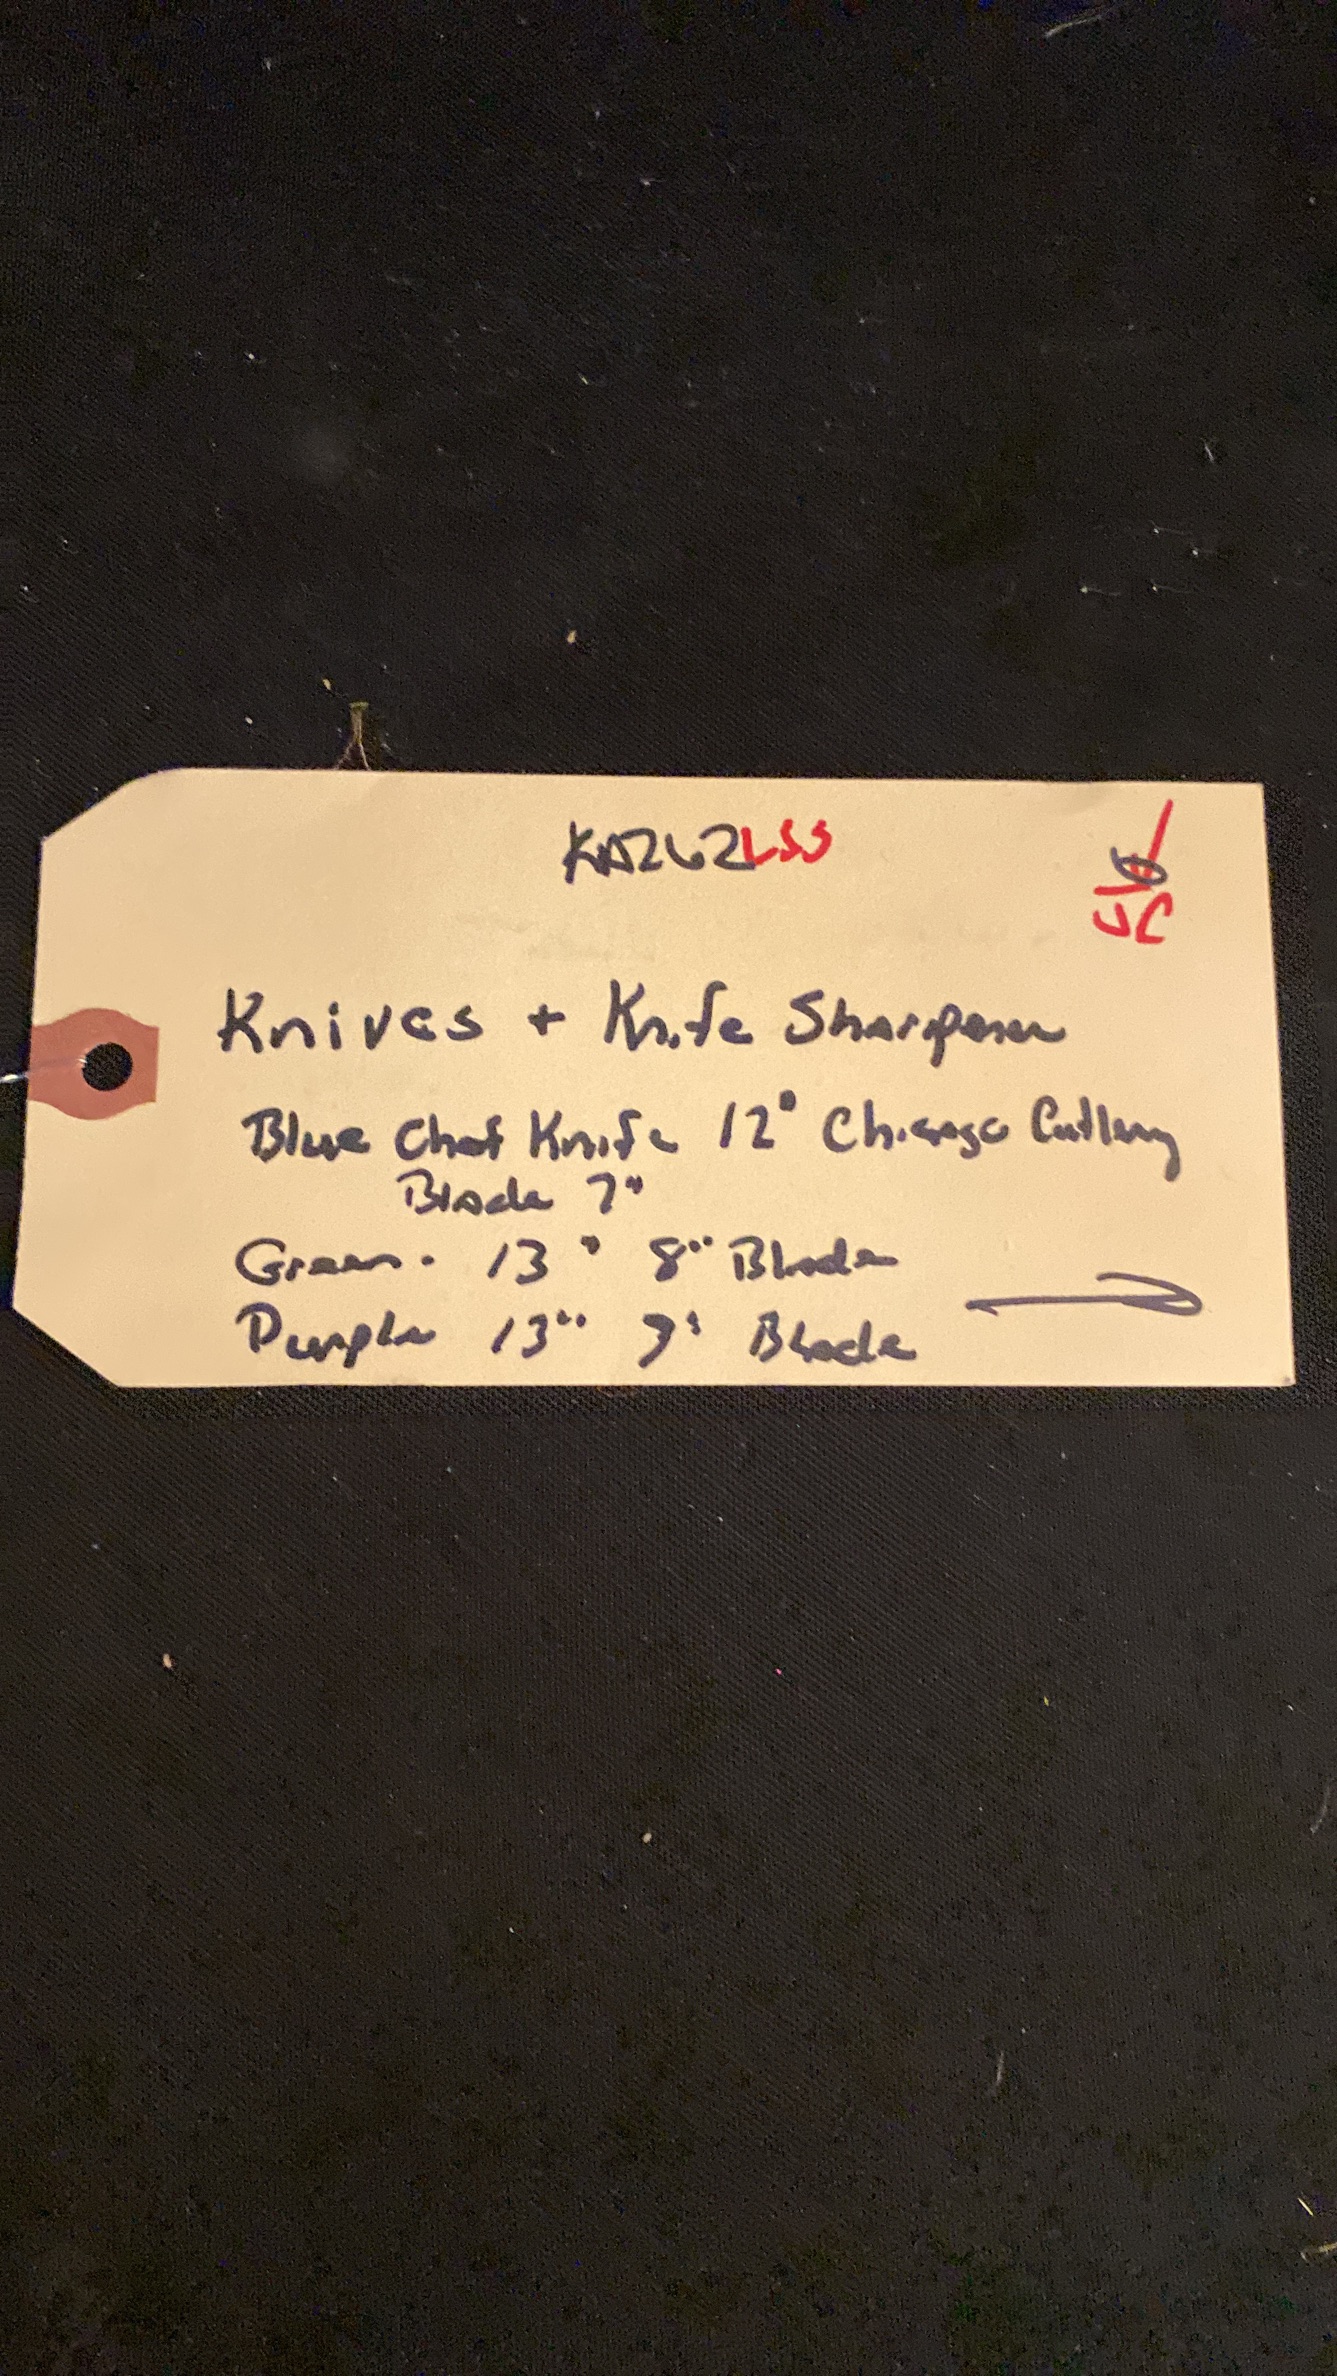 KA262LSS
Knives + Knife Sharpener
Blue Chef Knife 12" Chicago Cutlery
Blade 7"
Green. 13" 8" Blade
Purple 13" 9" Blade